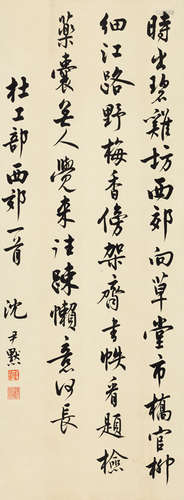 時出碧雞坊西郊向草堂市橋官柳
細江路野梅香傍架齊書帙看題檢
藥囊無人覺來往疎懶意何長
杜工部西郊一首 沈尹默